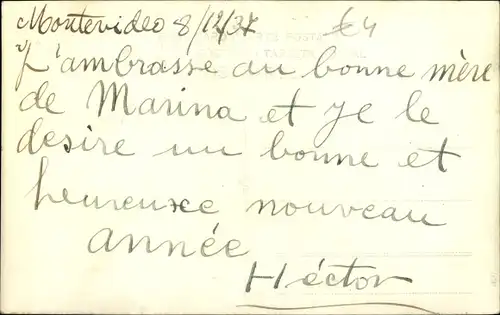 Montevideo 8/12/37 £4
J'ambrasse au bonne mère
de Marina et Je le
desire un bonne et
heureuxe nouveau
année
Héctor